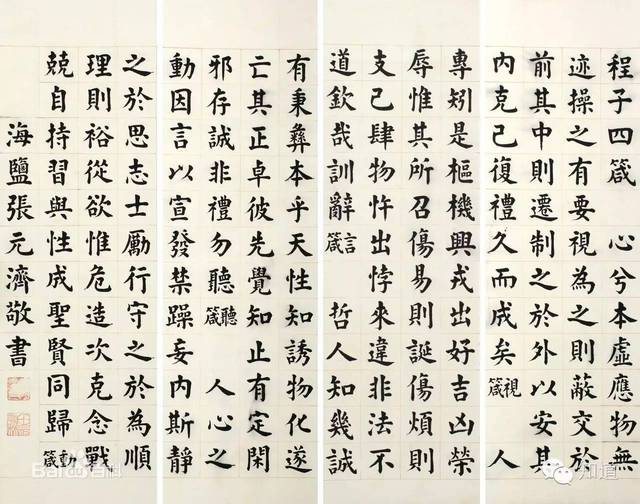 程子四箴 心兮本虛應物無
迹操之有要視為之則蔽交於
前其中則遷制之於外以安其
內克己復禮久而成矣視箴 人
專矧是樞機興戎出好吉凶榮
辱惟其所召傷易則誕傷煩則
支己肆物忤出悖來違非法不
道欽哉訓辭言箴 哲人知幾誠
有秉彝本乎天性知誘物化遂
亡其正卓彼先覺知止有定閑
邪存誠非禮勿聽聽箴 人心之
動因言以宣發禁躁妄內斯靜
之於思志士勵行守之於為順
理則裕從欲惟危造次克念戰
兢自持習與性成聖賢同歸動箴
海鹽張元濟敬書
Bai百科
知道